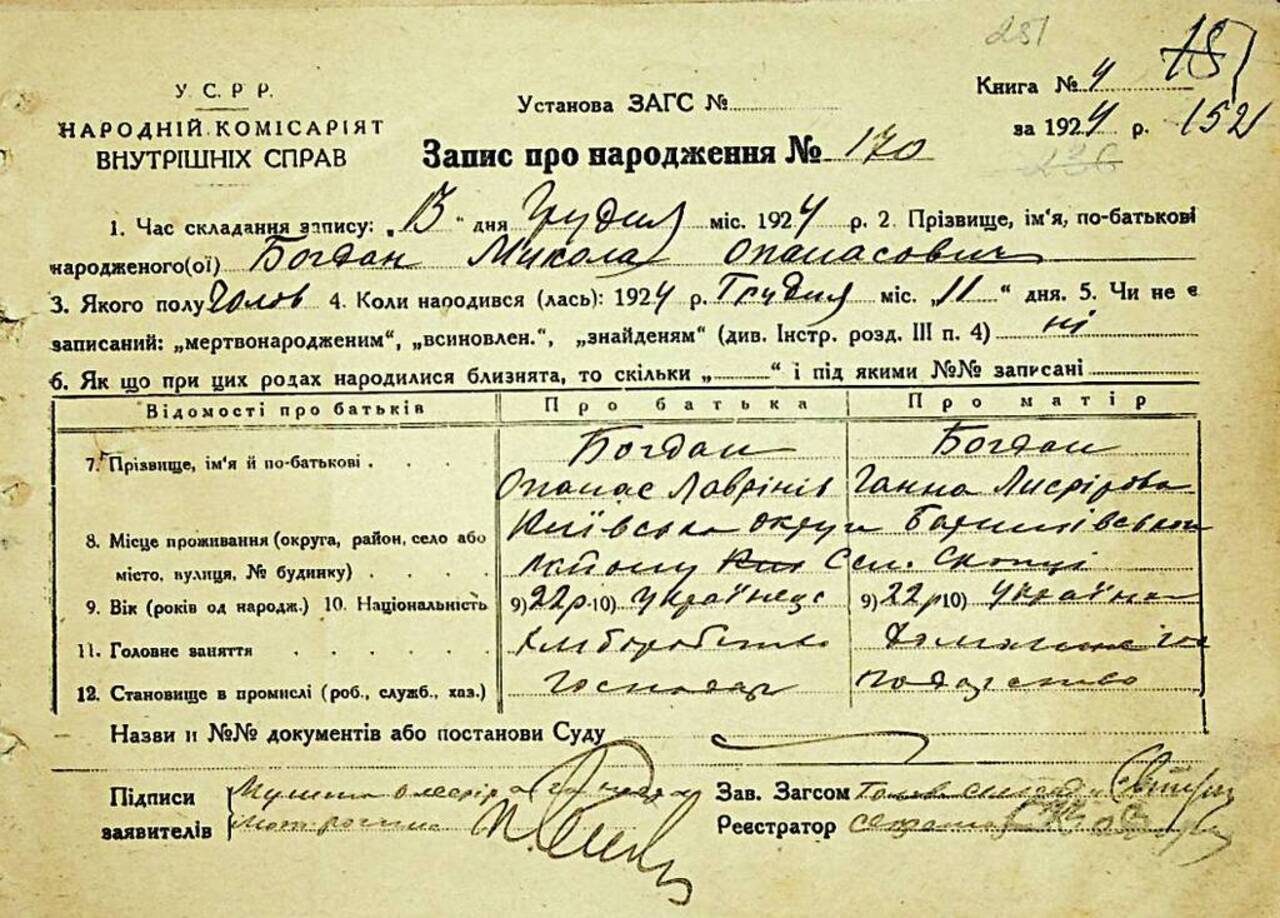 251
У. С. Р. Р.
НАРОДНІЙ КОМІСАРІЯТ
ВНУТРІШНІХ СПРАВ
Установа ЗАГС №
Книга № 4 151
за 1924 р. 152
236
Запис про народження № 170
1. Час складання запису: „13" дня Грудня міс. 1924 р. 2. Прізвище, ім'я, по-батькові
народженого(ої) Богдан Микола Опанасович
3. Якого полу Чолов 4. Коли народився (лась): 1924 р. Грудня міс. „11" дня. 5. Чи не є
записаний: „мертвонародженим", „всиновлен.", „знайденям" (див. Інстр. розд. III п. 4) ні
6. Як що при цих родах народилися близнята, то скільки „ " і під якими №№ записані
Відомості про батьків Про батька Про матір
7. Прізвище, ім'я й по-батькові Богдан Богдан
Опанас Лаврінів Ганна
8. Місце проживання (округа, район, село або Київська округи Баришівського
місто, вулиця, № будинку) району Сел. Скопці
9. Вік (років од народж.) 10. Національність 9) 22 р. 10) Українець 9) 22 р 10) Українка
11. Головне заняття Хліборобство Домашнє гос
12. Становище в промислі (роб., служб., хаз.) Господар подарство
Назви и №№ документів або постанови Суду
Підписи
заявителів
Зав. Загсом Голов сільради
Реєстратор секретар